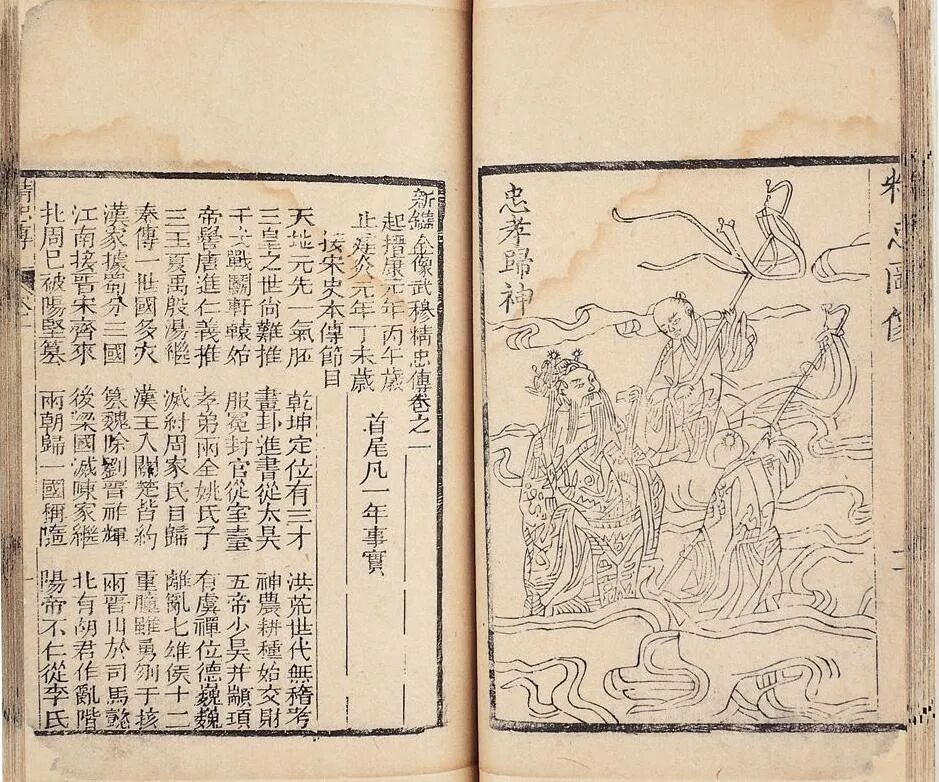 忠圖像
二
忠孝歸神
新鐫全像武穆精忠傳卷之一
起靖康元年丙午歲
止建炎元年丁未歲
首尾凡一年事實
按宋史本傳節目
天地元先一氣胚 乾坤定位有三才 洪荒世代無稽考
三皇之世尚難推 畫卦進書從太昊 神農耕種始交財
千戈戰鬭軒轅始 服冕封官從室臺 五帝小昊并顓頊
帝嚳唐進仁義推 孝弟兩全姚氏子 有虞禪位德巍巍
三王夏禹殷湯繼 滅紂周家氏目歸 離亂七雄侯十二
秦傳二世國多灾 漢王入關楚皆約 重瞳雖勇刎于垓
漢家據蜀分三國 篡魏除劉晋祚輝 兩晋山於司馬懿
江南接晋宋齊來 後梁國滅陳家繼 北有胡君作亂階
北周已被陽堅篡 兩朝歸一國稱隨 陽帝不仁從李氏
精忠傳 卷一